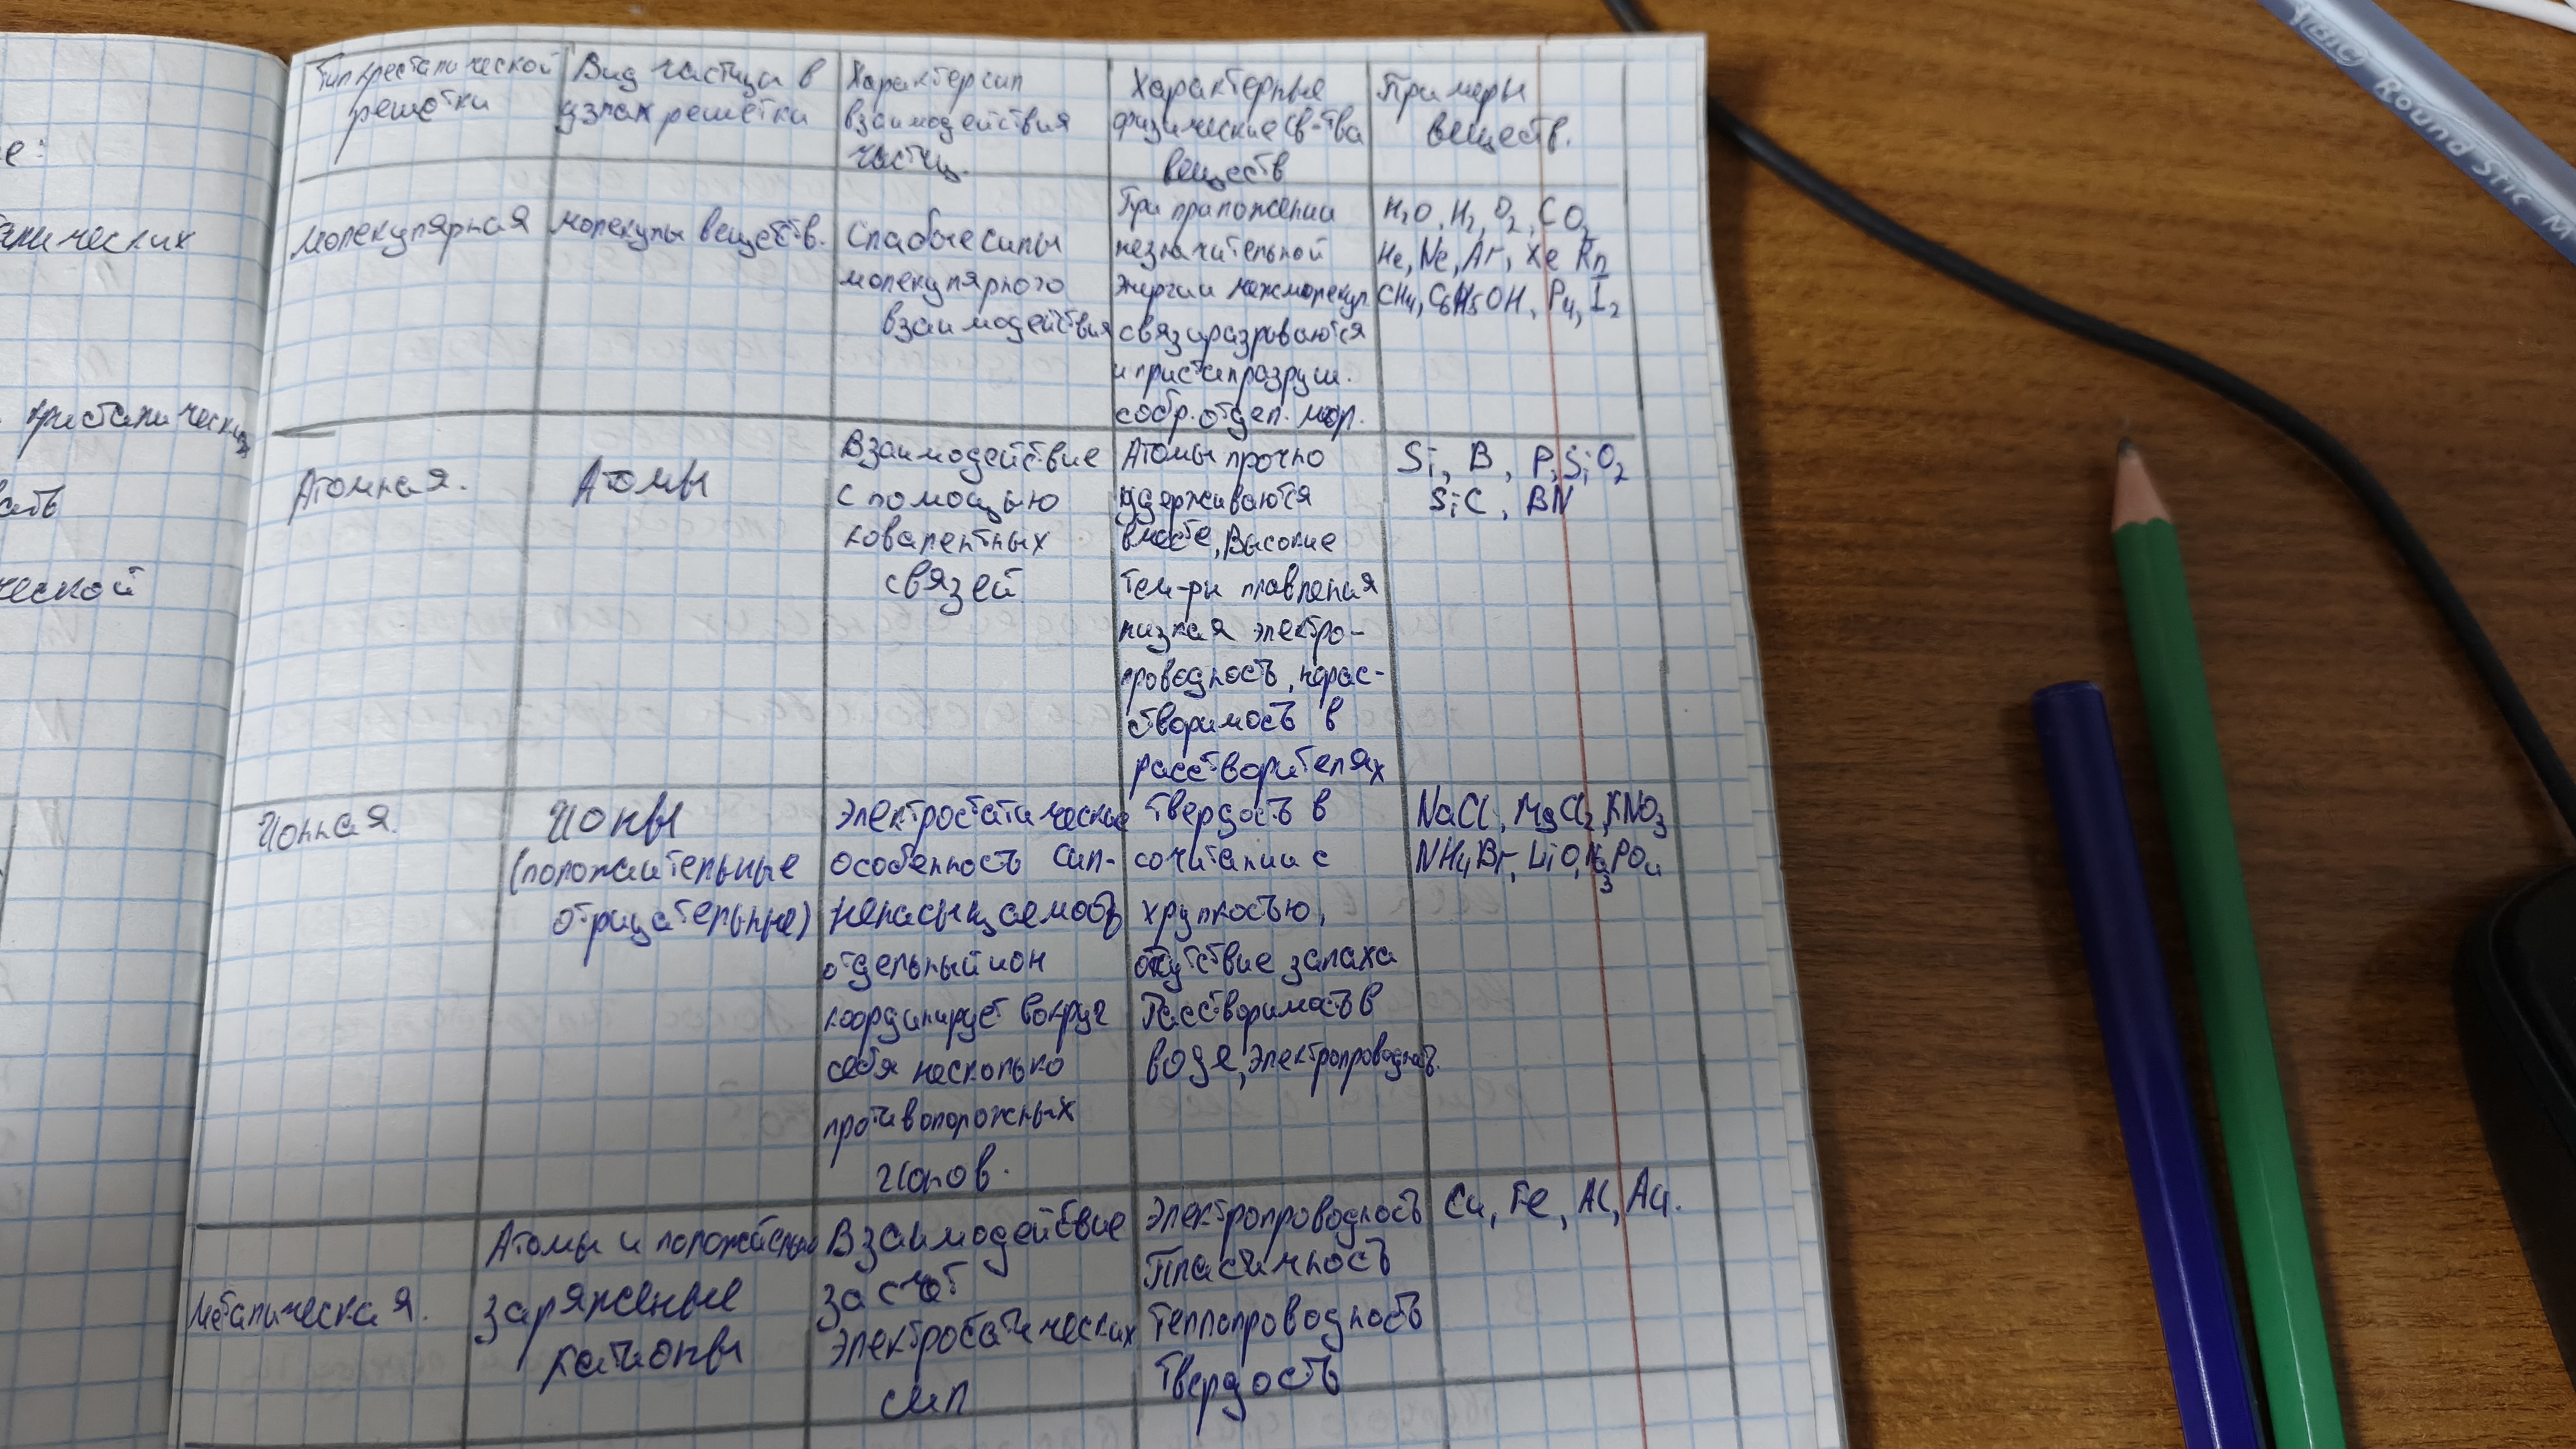 е:
анических
кристалических
вать
ческой
Тип кресталической
решотки
Вид частицы в
узлах решетки
Характер сил
взаимодействия
частиц.
Характерные
физические св-тва
веществ
Примеры
веществ.
молекулярная
молекулы веществ.
Слабые силы
молекулярного
взаимодействия
При приложении
незначительной
энергии межмолекул
связи разрываются
и
собр. отдел. мол.
H2O, H2, O2, CO2
He, Ne, Ar, Xe Rn
CH4, C6H5OH, P4, I2
Атомная.
Атомы
Взаимодействие
с помощью
ковалентных
связей
Атомы прочно
удерживаются
вместе, Высокие
тем-ры плавления
низкая электро-
проводность, нерас-
творимость в
расстворителях
Si, B, P, SiO2
SiC, BN
Ионная.
Ионы
(положительные
отрицательные)
Электростатические
особенность сил-
ненасыщаемость
отдельный ион
координирует вокруг
себя несколько
противоположных
ионов.
Твердость в
сочитании с
хрупкостью,
отсутствие запаха
Расстворимость в
воде, электропроводность.
NaCl, MgCl2, KNO3
NH4Br, LiO, Na3PO4
Металическая.
Атомы и положительно
заряженые
катионы
Взаимодействие
за счёт
электростатических
сил
Электропроводность
Пластичность
Теплопроводность
Твердость
Cu, Fe, Al, Au.
BIC Round Stic M